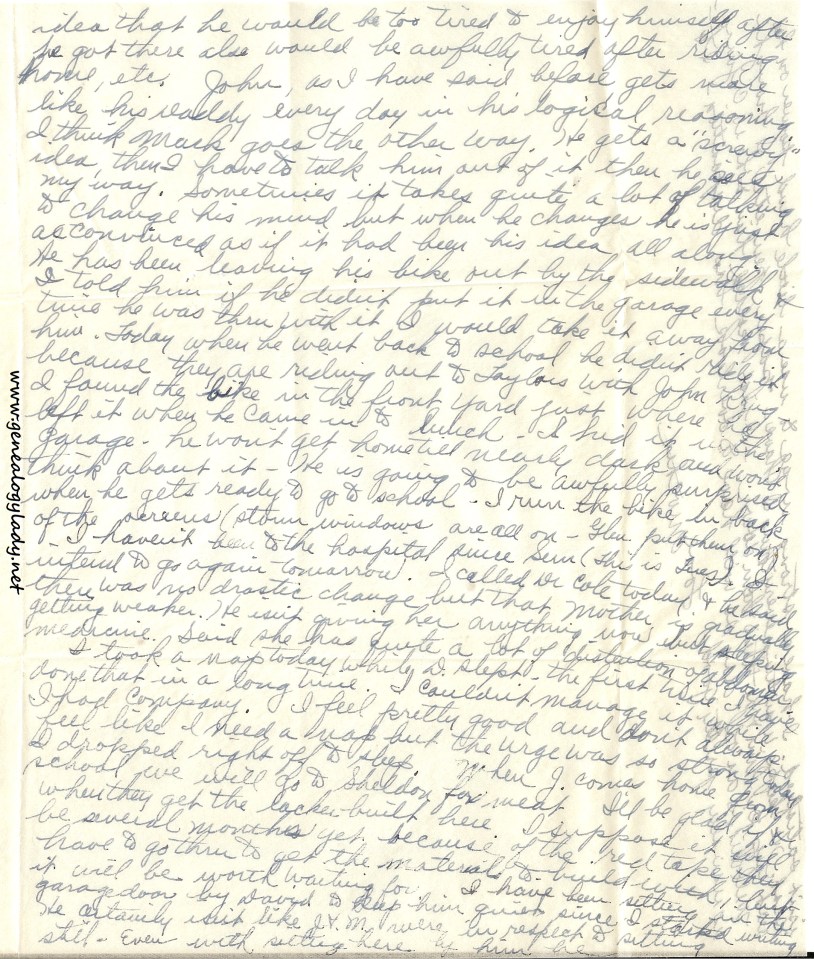 idea that he would be too tired to enjoy himself after
he got there also would be awfully tired after riding
home, etc. John, as I have said before gets more
like his daddy every day in his logical reasoning
I think Mark goes the other way. He gets a "screwy"
idea then I have to talk him out of it then he sees
my way. Sometimes it takes quite a lot of talking
to change his mind but when he changes he is just
as convinced as if it had been his idea all along.
He has been leaving his bike out by the sidewalk &
I told him if he didn't put it in the garage every
time he was thru with it I would take it away from
him. Today when he went back to school he didn't ride it
because they are riding out to Taylors with John King &
I found the bike in the front yard just where he
left it when he came in to lunch - I hid it in the
garage - he wont get home till nearly dark and won't
think about it - He is going to be awfully surprised
when he gets ready to go to school - I run the bike in back
of the screens (storm windows are all on - Glen put them on)
I havent been to the hospital since Sun (this is Tues). I
intend to go again tomorrow. I called Dr Cole today & he said
there was no drastic change but that Mother is gradually
getting weaker. He isn't giving her anything now but sleeping
medicine. Said she has quite a lot of distention of abdomen
I took a nap today while D. slept - the first time I have
done that in a long time. I couldn't manage it while
I had company. I feel pretty good and don't always
feel like I need a nap but the urge was so strong today
I dropped right off to sleep. When J. comes home from
school we will go to Sheldon for meat. I'll be glad
when they get the locker built here. I suppose it will
be several months yet because of the red tape they
have to go thru to get the material to build which I think
it will be worth waiting for. I have been sitting in the
garage door by David to keep him quiet since I started writing
He certainly isn't like J. & M. were in respect to sitting
still - Even with sitting here by him he
www.genealogylady.net